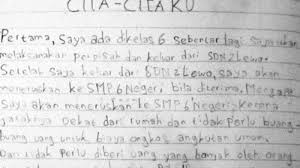 CITA-CITAKU
Pertama, saya ada dikelas 6 sebentar lagi saya akan
melaksanakan perpisah dan keluar dari SDN 2 Lewa.
Setelah saya keluar dari SDN 2 Lewa, saya akan
meneruskan ke SMP 6 Negeri bila diterima, Mengapa
saya akan meneruskan ke SMP 6 Negeri, karena
jaraknya Dekat dari rumah dan tidak Perlu buang-
buang uang untuk biaya ongkos angkutan umum.
Dan tidak Perlu diberi uang yang banyak oleh orang